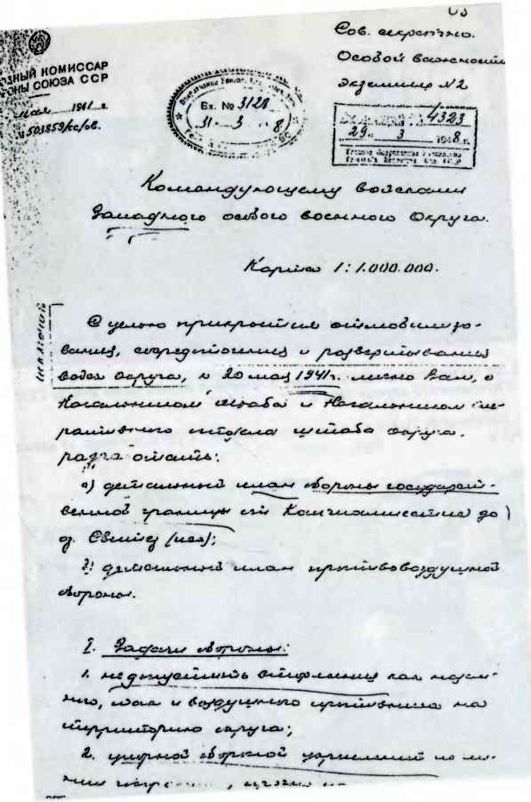 Сов. секретно.
Особой важности
Экземпляр № 2
НЫЙ КОМИССАР
ОНЫ СОЮЗА ССР
мая 1941 г.
№ 503859/сс/ов.
Вх. № 3128
31 3 8
4323
29 3 1948 г.
Командующему войсками
Западного особого военного округа.
Карта 1:1.000.000.
С целью прикрытия отмобилизо-
вания, сосредоточения и развертывания
войск округа, к 20 мая 1941 г. лично Вам, с
Начальником штаба и Начальником опе-
ративного отдела штаба округа.
разработать:
а) детальный план обороны государст-
венной границы от Канчиамиестис до
оз. Свитез (иск);
б) детальный план противовоздушной
обороны.
I. Задачи обороны:
1. не допустить вторжения как назем-
ного, так и воздушного противника на
территорию округа;
2. упорной обороной укреплений по ли-
нии